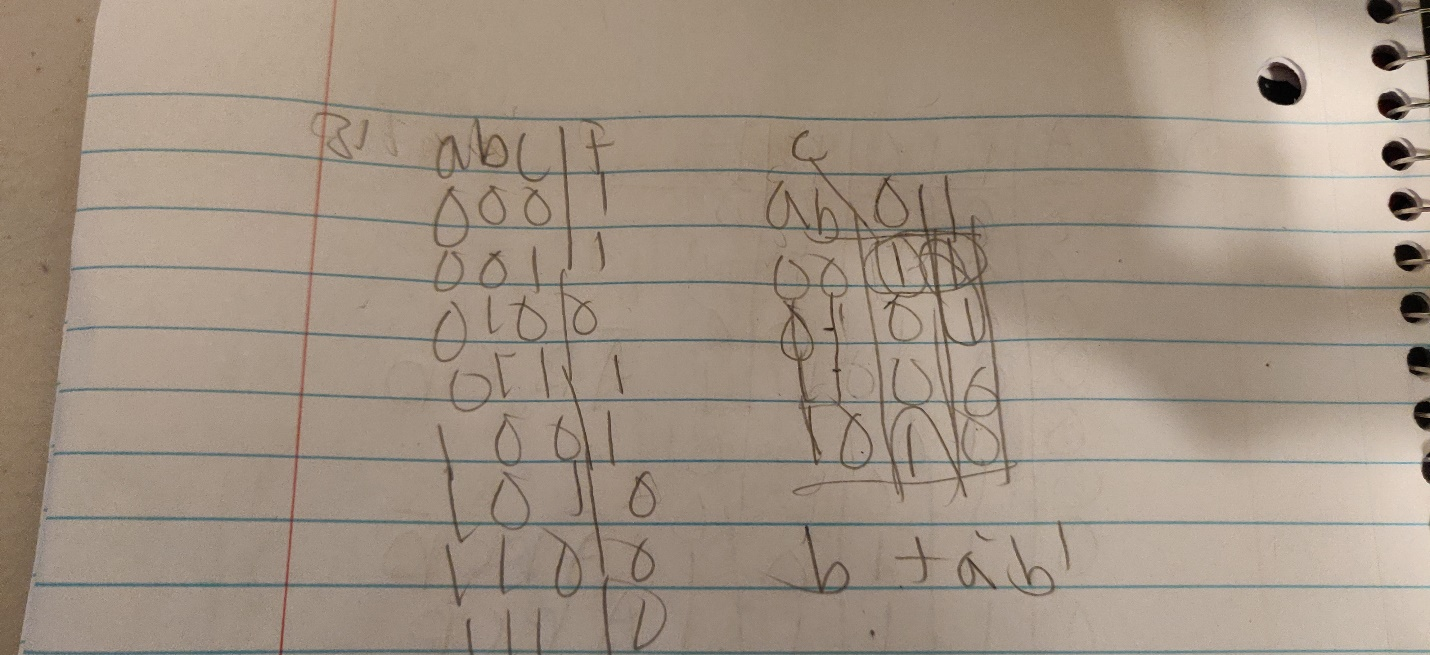 abc | f
000 | 1
001 | 1
010 | 0
011 | 1
100 | 1
101 | 0
110 | 0
111 | 0
c
ab 0 1
00 1 1
01 0 1
11 0 0
10 1 0
b + a'b'